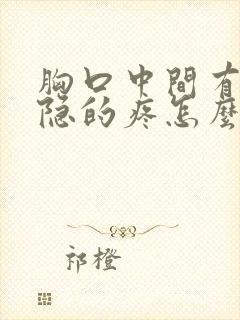 胸口中間有
隐的疼怎麼
祁橙